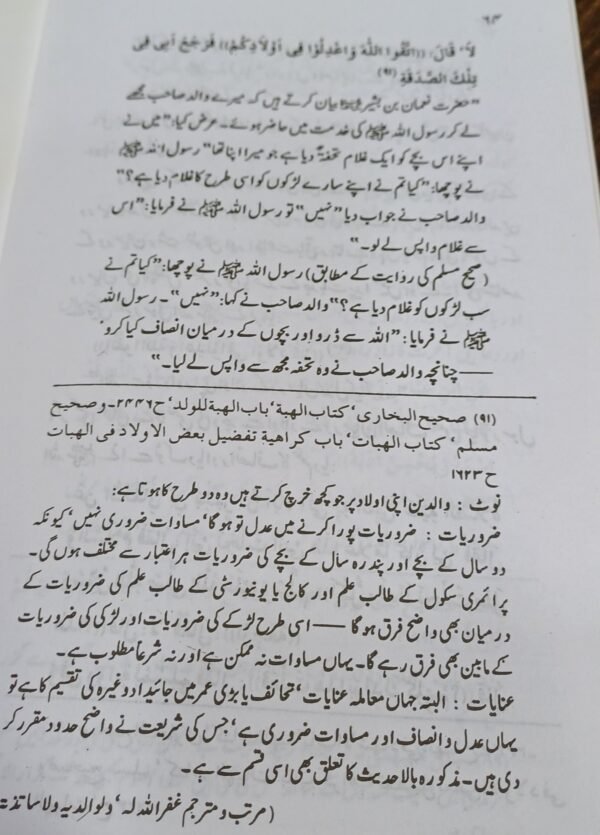 ۶۳
لَا، قَالَ: ((اتَّقُوا اللّٰهَ وَاعْدِلُوا فِي أَوْلَادِكُمْ)) فَرَجَعَ أَبِي فِي
تِلْكَ الصَّدَقَةِ (۹۱)
”حضرت نعمان بن بشیرؓ بیان کرتے ہیں کہ میرے والد صاحب مجھے
لے کر رسول اللہ ﷺ کی خدمت میں حاضر ہوئے۔ عرض کیا: ”میں نے
اپنے اس بچے کو ایک غلام تحفۃً دیا ہے جو میرا اپنا تھا“ رسول اللہ ﷺ
نے پوچھا: ”کیا تم نے اپنے سارے لڑکوں کو اسی طرح کا غلام دیا ہے؟“
والد صاحب نے جواب دیا ”نہیں“ تو رسول اللہ ﷺ نے فرمایا: ”اس
سے غلام واپس لے لو۔“
(صحیح مسلم کی روایت کے مطابق) رسول اللہ ﷺ نے پوچھا: ”کیا تم نے
سب لڑکوں کو غلام دیا ہے؟“ والد صاحب نے کہا: ”نہیں“۔ رسول اللہ
ﷺ نے فرمایا: ”اللہ سے ڈرو اور بچوں کے درمیان انصاف کیا کرو‘
—— چنانچہ والد صاحب نے وہ تحفہ مجھ سے واپس لے لیا۔“
(۹۱) صحیح البخاری‘ کتاب الھبة‘ باب الھبة للولد‘ ح ۲۴۴۶۔ وصحیح
مسلم‘ کتاب الھبات‘ باب کراھیة تفضیل بعض الاولاد فی الھبات
ح ۱۶۲۳
نوٹ : والدین اپنی اولاد پر جو کچھ خرچ کرتے ہیں وہ دو طرح کا ہوتا ہے:
ضروریات : ضروریات پورا کرنے میں عدل تو ہو گا‘ مساوات ضروری نہیں‘ کیونکہ
دو سال کے بچے اور پندرہ سال کے بچے کی ضروریات ہر اعتبار سے مختلف ہوں گی۔
پرائمری سکول کے طالب علم اور کالج یا یونیورسٹی کے طالب علم کی ضروریات کے
درمیان بھی واضح فرق ہو گا —— اسی طرح لڑکے کی ضروریات اور لڑکی کی ضروریات
کے مابین بھی فرق رہے گا۔ یہاں مساوات نہ ممکن ہے اور نہ شرعاً مطلوب ہے۔
عنایات : البتہ جہاں معاملہ عنایات‘ تحائف یا بڑی عمر میں جائیداد وغیرہ کی تقسیم کا ہے تو
یہاں عدل و انصاف اور مساوات ضروری ہے‘ جس کی شریعت نے واضح حدود مقرر کر
دی ہیں۔ مذکورہ بالا حدیث کا تعلق بھی اسی قسم سے ہے۔
(مرتب و مترجم غفر اللہ لہ‘ ولوالدیہ ولاساتذتہ